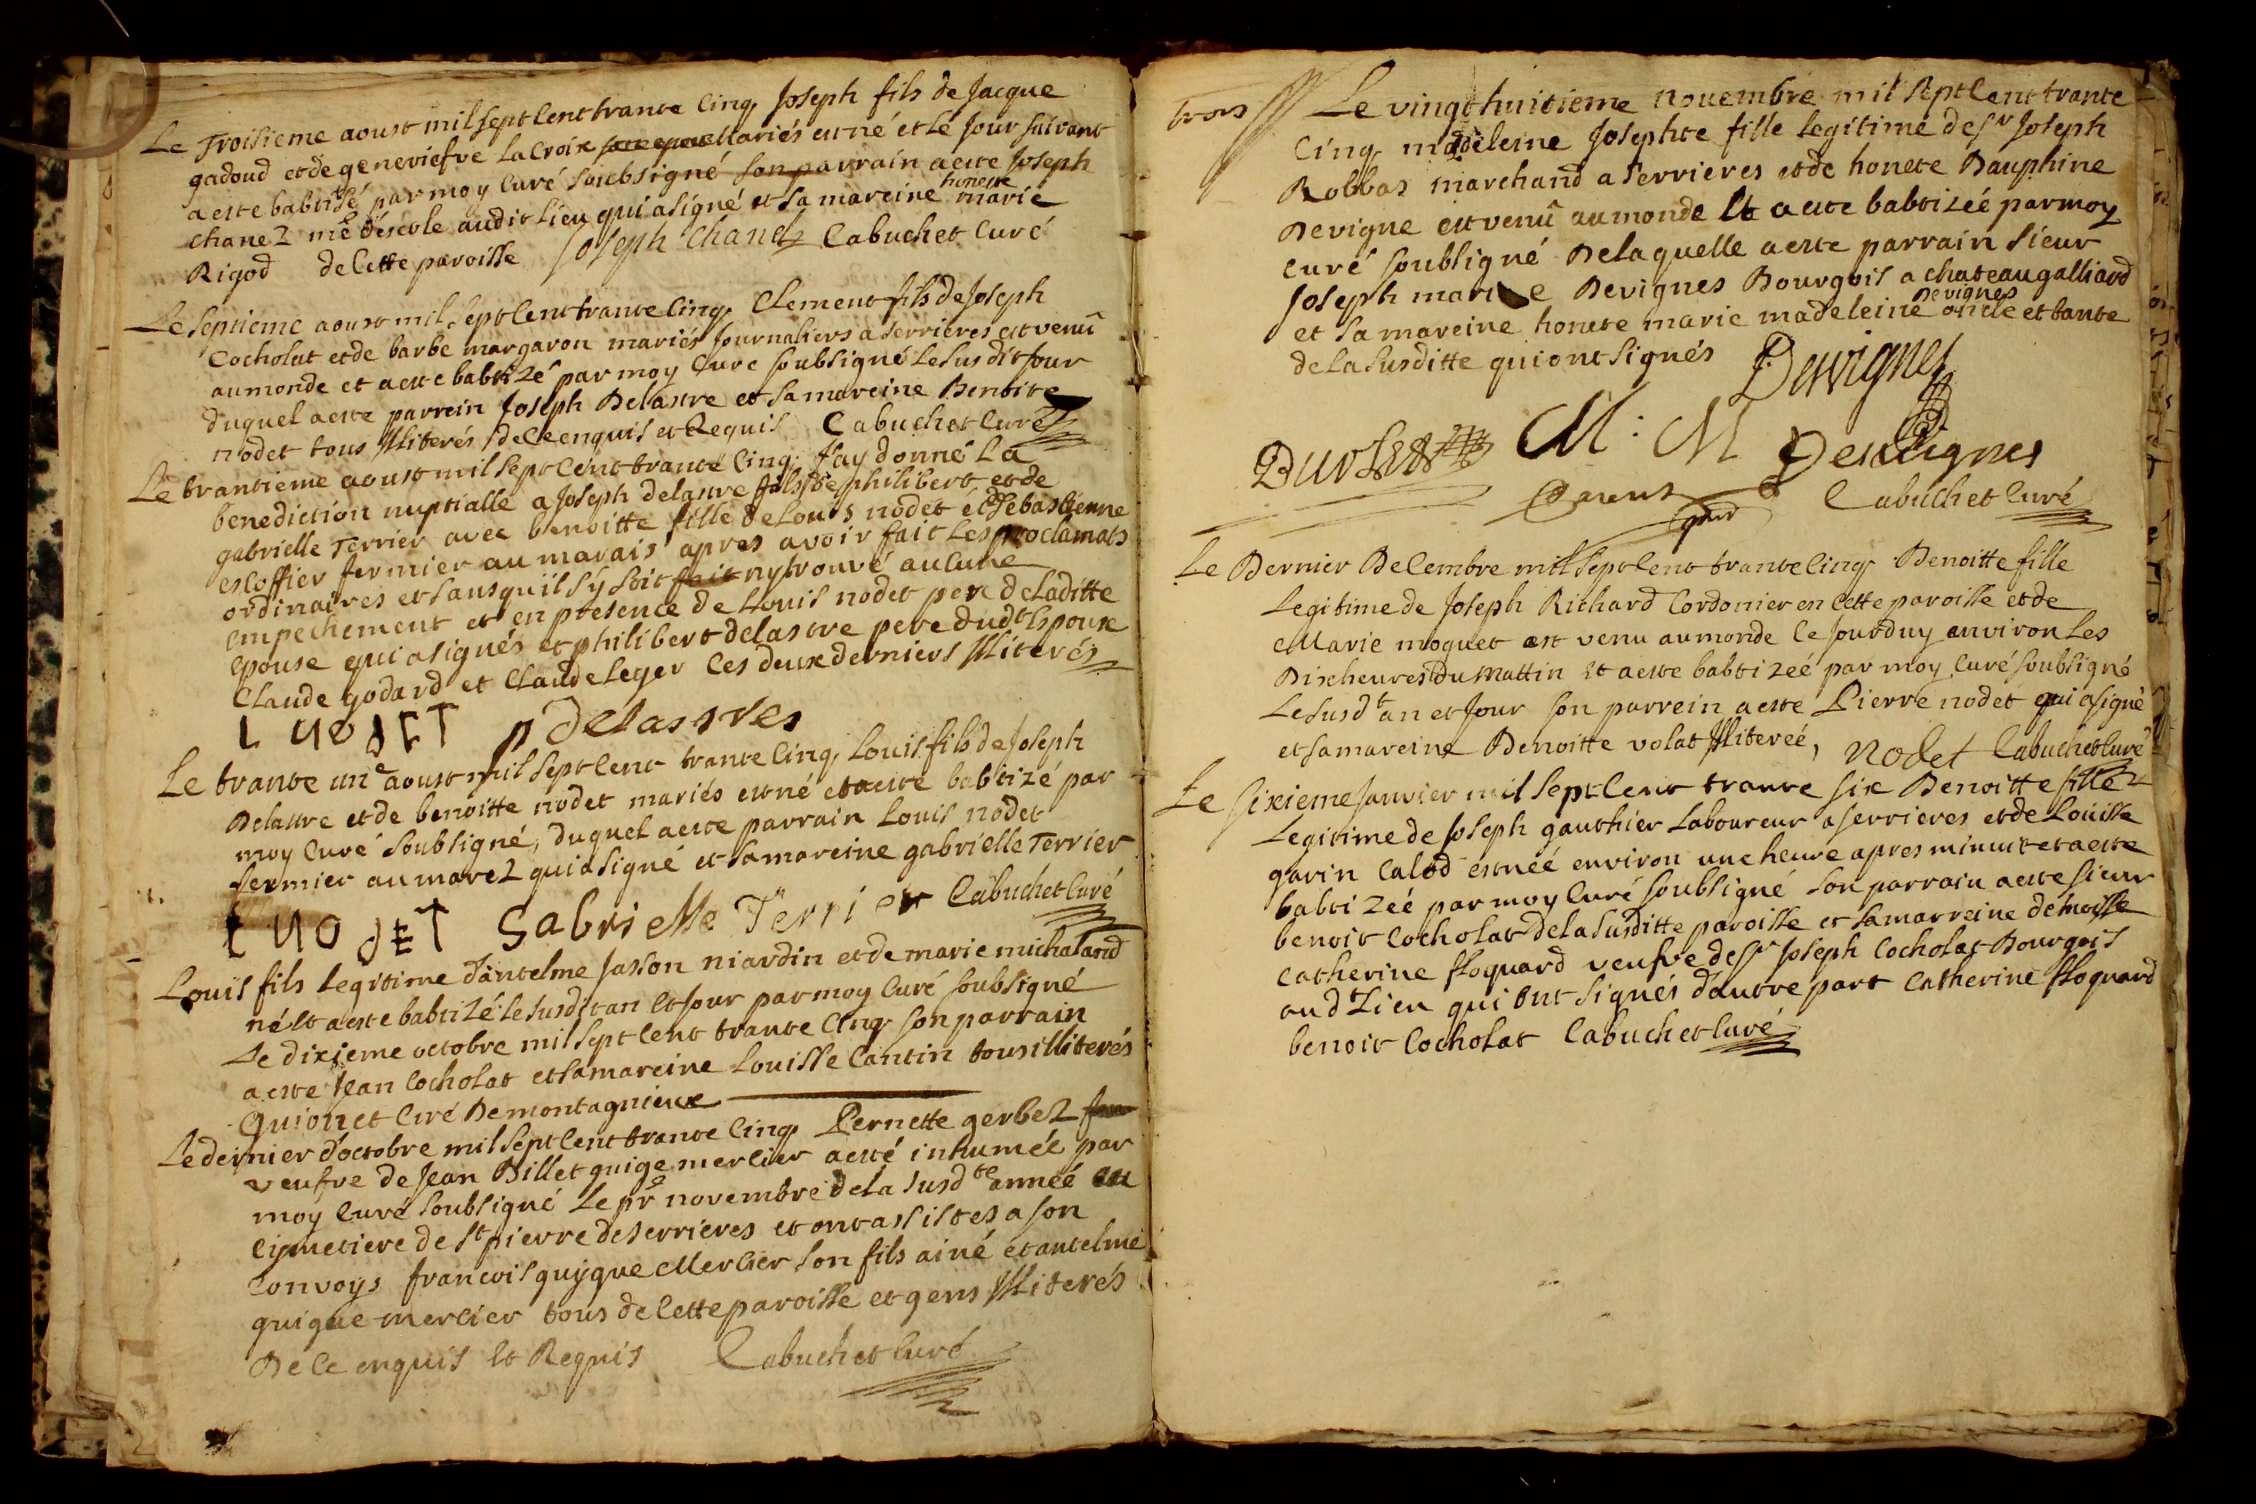 Le Troisieme aoust mil sept cent trante cinq Joseph fils de Jacque
gadoud et de geneviefve Lacroix mariés est né et le Jour suivant
a este babtisé par moy Curé soubsigné son parrain a este Joseph
chanez me d'escole audit lieu qui a signé et sa mareine honeste marie
Rigod de cette paroisse Joseph Chanel Cabuchet Curé
Le septieme aoust mil sept cent trante cinq Clement fils de Joseph
Cocholat et de barbe margaron mariés Journaliers a serrieres est venû
au monde et a este babtizé par moy Curé soubsigné le susdit Jour
duquel a este parrein Joseph Delastre et sa mareine Benoite
nodet tous Illiterés de ce enquis et Requis Cabuchet Curé
Le trantieme aoust mil sept cent trante cinq J'ay donné La
benediction nuptialle a Joseph delastre fils de philibert et de
gabrielle Terrier avec benoitte fille de Louis nodet et Sebastienne
escoffier fermier au marais apres avoir fait les proclamats
ordinaires et sans qu'il s'y soit fait ny trouvé aucune
empechement et en presence de Louis nodet pere de laditte
epouse qui a signés et philibert delastre pere dudt Espoux
Claude godard et Claude Leger Ces deux derniers Illiterés
L NODET p Delastres
Le trante une aoust mil sept cent trante cinq Louis fils de Joseph
Delastre et de benoitte nodet mariés est né et a este babtizé par
moy Curé soubsigné, duquel a este parrain Louis nodet
fermier au marez qui a signé et sa mareine gabrielle Terrier
L NODET Gabrielle Terrier Cabuchet Curé
Louis fils legitime d'antelme Jasson niardin et de marie michaland
né et a este babtizé le susdit an et Jour par moy Curé soubsigné
Le dixieme octobre mil sept cent trante cinq son parrain
a este Jean Cocholat et sa mareine Louisse Cantin tous illiterés
Guionet Curé De montagnieux
Le dernier d'octobre mil sept cent trante cinq Pernette gerbez
veufve de Jean Billet guige mercier a esté inhumée par
moy Curé soubsigné Le pre novembre de la susdte année au
Cymetiere de St pierre de serrieres et ont assistes a son
Convoys francois guygue Mercier son fils ainé et antelme
guigue mercier tous de cette paroisse et gens Illiterés
De ce enquis et Requis Cabuchet Curé
trois Le vingt huitieme novembre mil sept cent trante
Cinq madeleine Josephte fille legitime de Sr Joseph
Robbas marchand a serrieres et de honete Dauphine
Devigne est venû au monde et a este babtizéé par moy
Curé soubsigné De laquelle a este parrain sieur
Joseph marie Devignes Bourgois a chateaugalliard
et sa mareine honete marie madeleine Devignes oncle et tante
de la susditte qui ont signés Desvignes
M. M Desvignes
Cabuchet Curé
Le Dernier Decembre mil sept cent trante cinq Benoitte fille
Legitime de Joseph Richard Cordonier en cette paroisse et de
Marie moquet est venu au monde ce Jourduy environ les
Dix heures Du Mattin et a este babtizéé par moy Curé soubsigné
Le susdt an et Jour son parrein a este Pierre nodet qui a signé
et sa mareine Benoitte volat Illitereé, Nodet Cabuchet Curé
Le sixieme Janvier mil sept cent trante six Benoitte fille
Legitime de Joseph gauthier Laboureur a serrieres et de Louisse
garin Calod est néé environ une heure apres minuit et a este
babtizéé par moy Curé soubsigné son parrain a este sieur
benoit Cocholat de la susditte paroisse et sa marreine demoisse
Catherine floquard veufve de Sr Joseph Cocholat Bourgois
audt Lieu qui ont signés d'autre part Catherine floquard
benoit Cocholat Cabuchet Curé